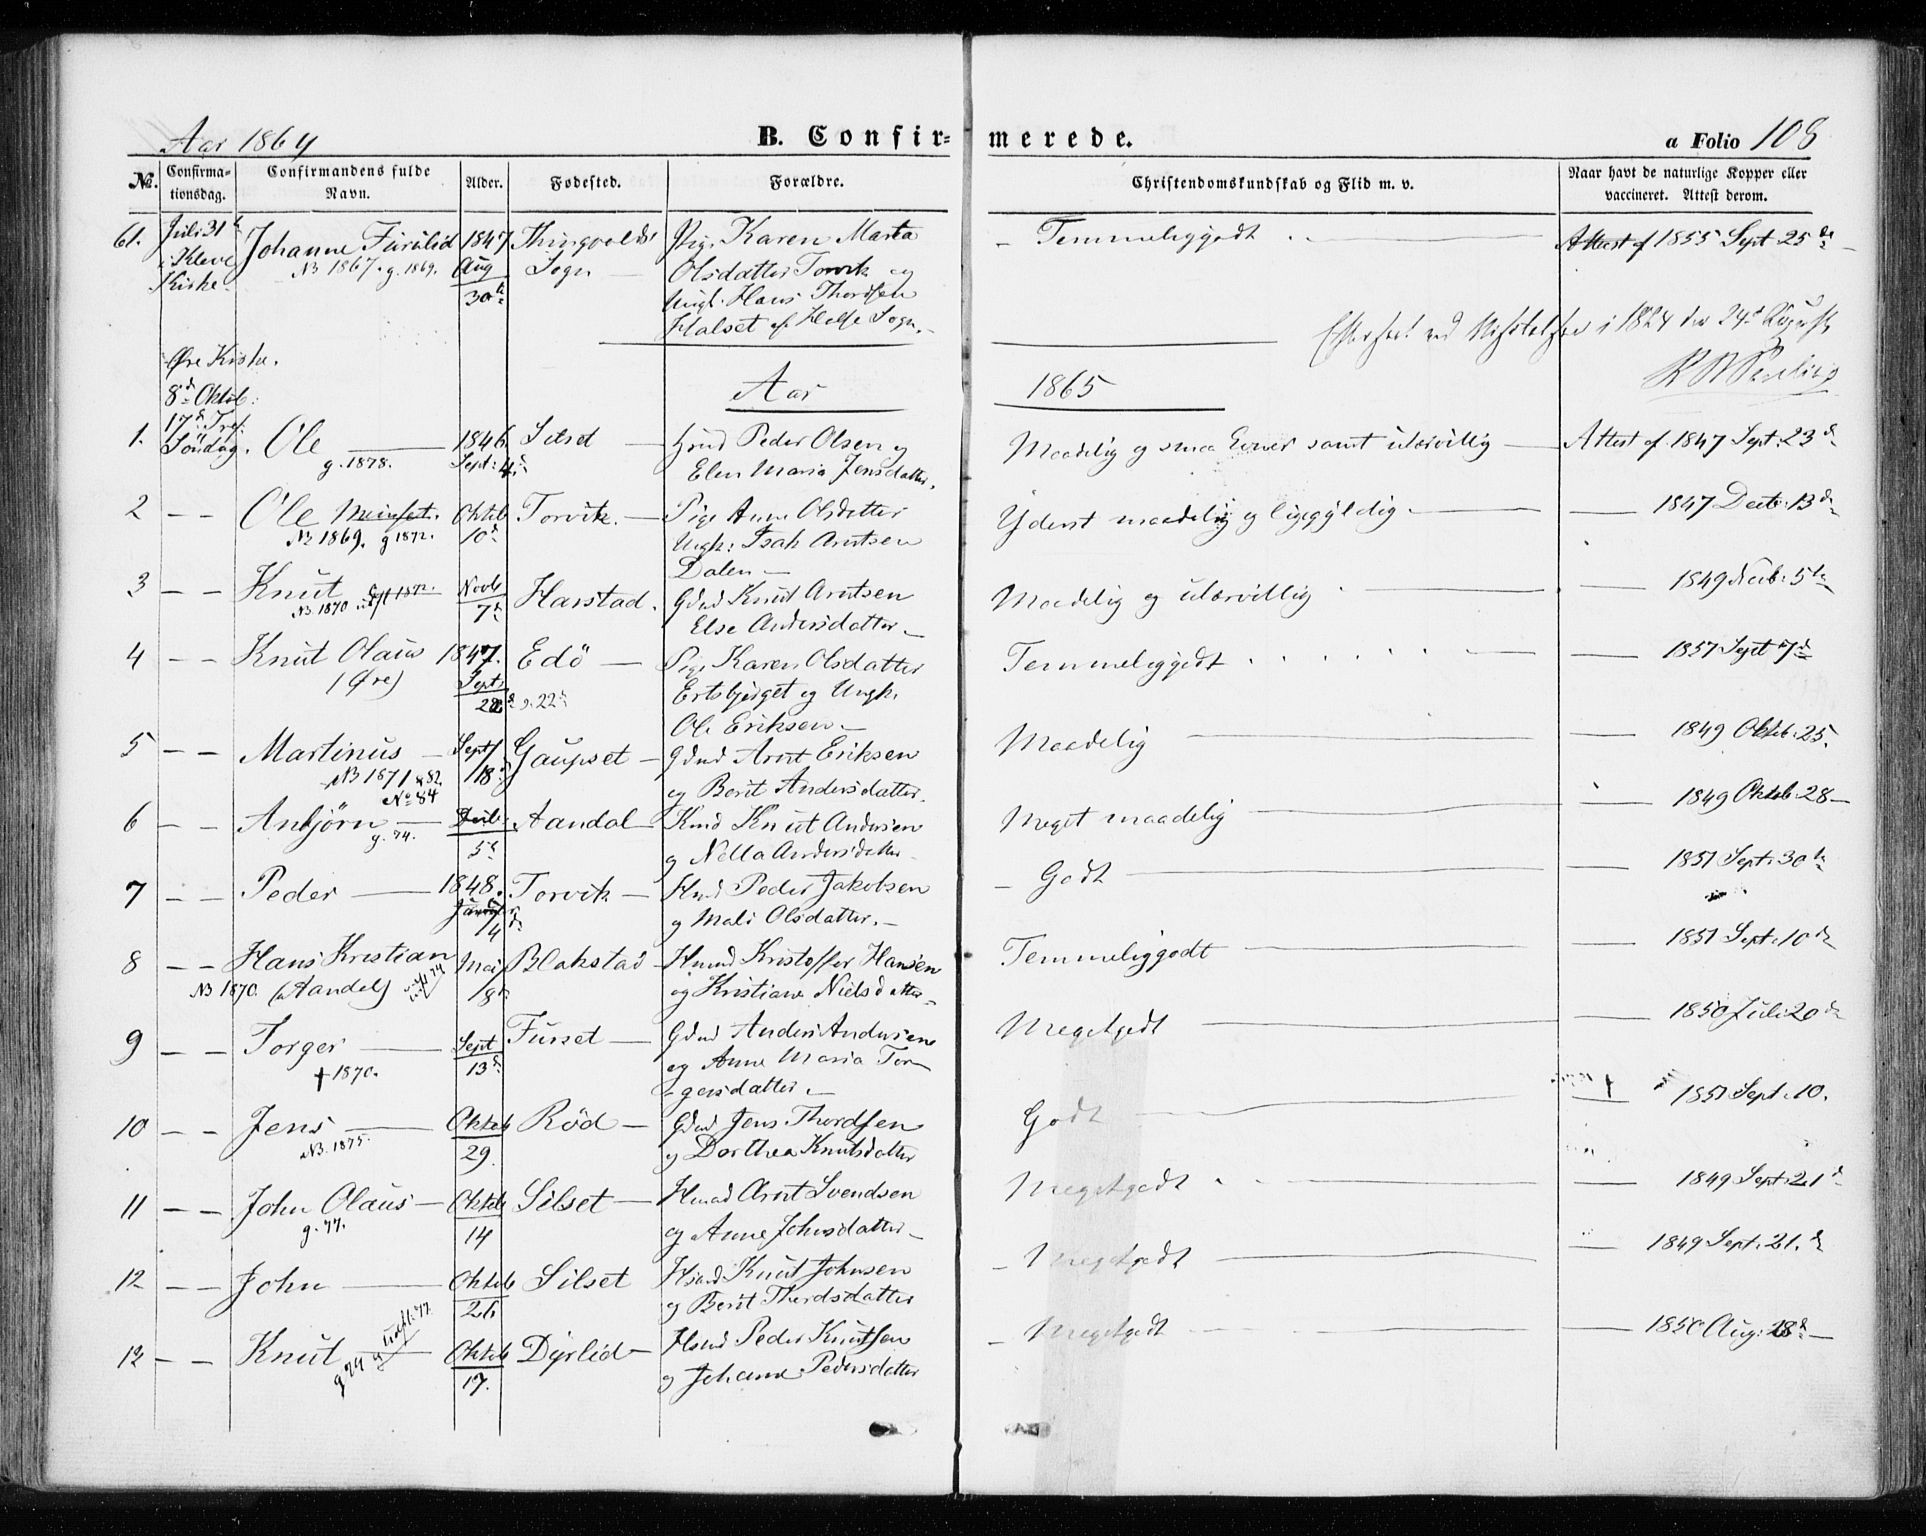 Aar 1864 B. Confir- merede. a Folio 108
No. Confirma- tionsdag. Confirmandens fulde Navn. Alder. Fødested. Forældre. Christendomskundskab og Flid m. v. Naar havt de naturlige Kopper eller vaccineret. Attest derom.
61. Juli 31 Johanne Furulid 1847 Thingvolds Pige Karen Marta – Temmeliggodt Attest af 1855 Sept. 25de
i Kleve NB 1867. g. 1869. Aug Sogn – Olsdatter Torvik og
Kirke. 30te Ungk. Hans Thordsen
Halset af Halse Sogn. –
Efterseet ved Visitatsen i 1864 den 24de August
Øre Kirke.
8de Oktob: Aar 1865
17de Tref:
1. Søndag. Ole 1846 Silset – Hmd Peder Olsen og Maadelig og smaa Evner samt ulærvillig – Attest af 1847 Sept. 23de
g. 1878. Sept: 4de Elen Maria Jensdatter.
2 – – Ole Meinset. Oktob Torvik. – Pige Anne Olsdatter Yderst maadelig og ligegyldig. – 1847 Decb: 13de
NB 1869. g 1872. 10de Ungk: Isak Arntsen
Dalen –
3 – – Knut Novb Harstad. Gdmd Knut Arntsen Maadelig og ulærvillig – 1849 Novb: 5te
NB 1870 udfl 1872. 7de Else Andersdatter –
4 – – Knut Olaus 1847. Edö – Pige Karen Olsdatter Temmeliggodt – 1857 Sept 7de
(Øre) Sept: 28de g. 22de Ertsbjerget og Ungk.
Ole Eriksen. –
5 – – Martinus – Sept Gaupset – Gdmd Arnt Eriksen Maadelig – 1849 Oktob. 25.
NB 1871 & 82 18de og Berit Andersdatter.
No 84
6 – – Anbjörn – Decb. Aandal – Kmd Knut Andersen Meget maadelig – 1849 Oktob. 28 –
g. 74. 5te og Nella Andersdatter
7 – – Peder – 1848. Torvik – Hmd Peder Jakobsen – Godt – 1851 Sept. 30te
Januar 4de og Mali Olsdatter. –
8 – – Hans Kristian Mai Blakstad – Hmd Kristoffer Hansen Temmeliggodt – 1851 Sept. 10de
NB 1870. (Aandal) 8de og Kristiane Nielsdatter –
9 – – Torger – Sept Furset – Gdmd Anders Andersen Megetgodt – 1850 Juli 20de
† 1870. 13de og Anne Maria Tor-
gersdatter. –
10 – – Jens – Oktob Röd – Gdmd Jens Thordsen Godt – 1851 Sept. 10.
NB. 1875. 29. og Dorthea Knutsdatter
11 – – John Olaus – Oktob Silset – Hmd Arnt Svendsen Megetgodt – 1849 Sept: 21de
g. 77. 14 og Anne Johnsdatter –
12 – – John – Oktob Silset Hmd Knut Johnsen – Megetgodt – 1849 Sept. 21.de
26 og Berit Thordsdatter
12 – – Knut – Oktob Dyrlid – Hmd Peder Knutsen – Megetgodt – 1850 Aug: 28de –
g 74 og udfl: 77. 17. og Johanne Pedersdatter